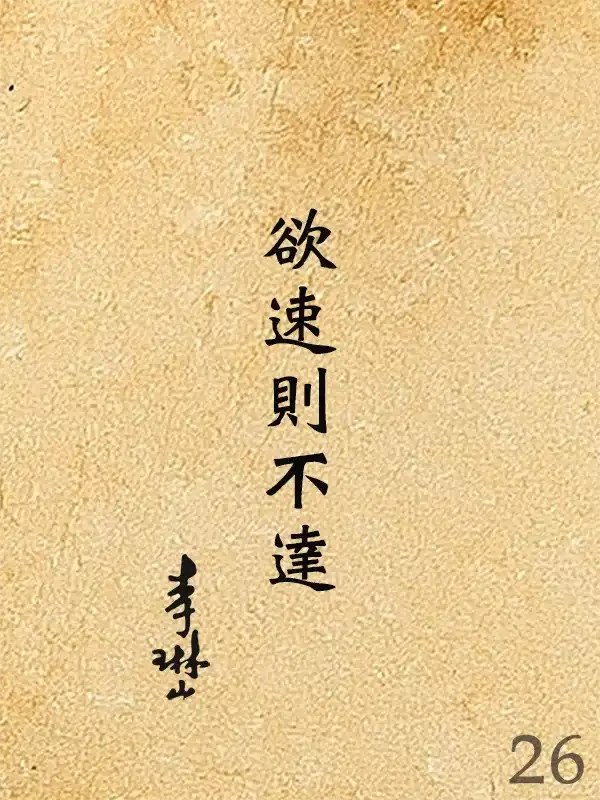 欲速則不達
李琳山
26